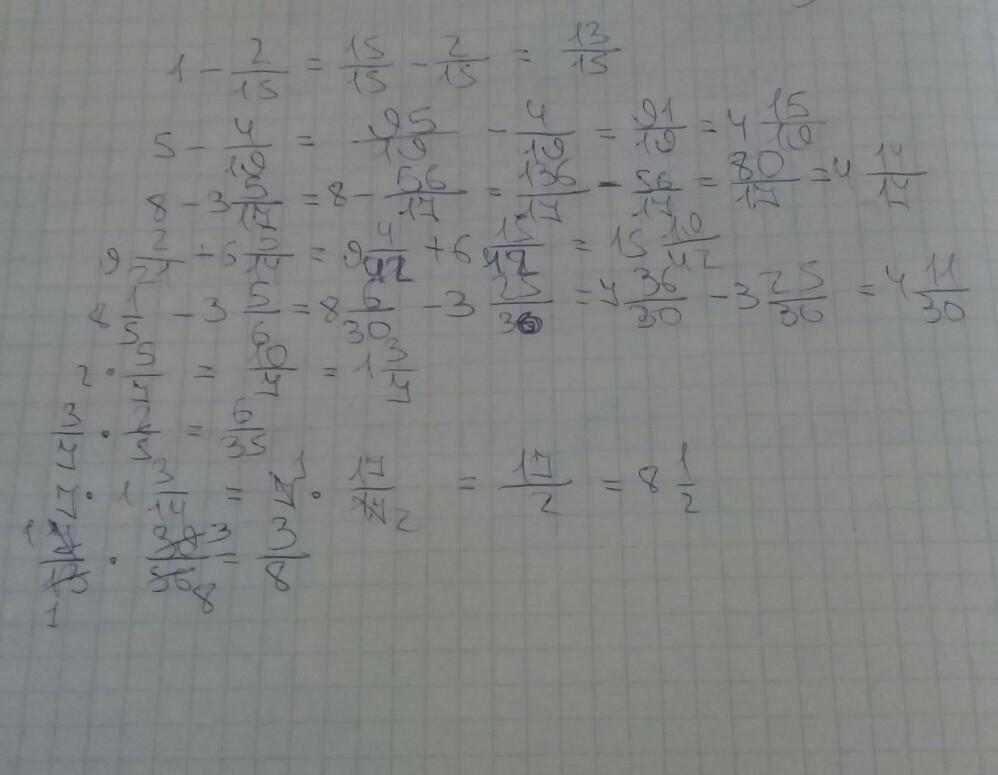 1 - 2/15 = 15/15 - 2/15 = 13/15
5 - 4/19 = 95/19 - 4/19 = 91/19 = 4 15/19
8 - 3 5/17 = 8 - 56/17 = 136/17 - 56/17 = 80/17 = 4 14/17
9 2/21 + 6 5/14 = 9 4/42 + 6 15/42 = 15 19/42
8 1/5 - 3 5/6 = 8 6/30 - 3 25/30 = 7 36/30 - 3 25/30 = 4 11/30
2 · 5/7 = 10/7 = 1 3/7
3/7 · 2/5 = 6/35
7 · 1 3/14 = 7 1 · 17/14 2 = 17/2 = 8 1/2
1 · 3 = 3/8
1 8